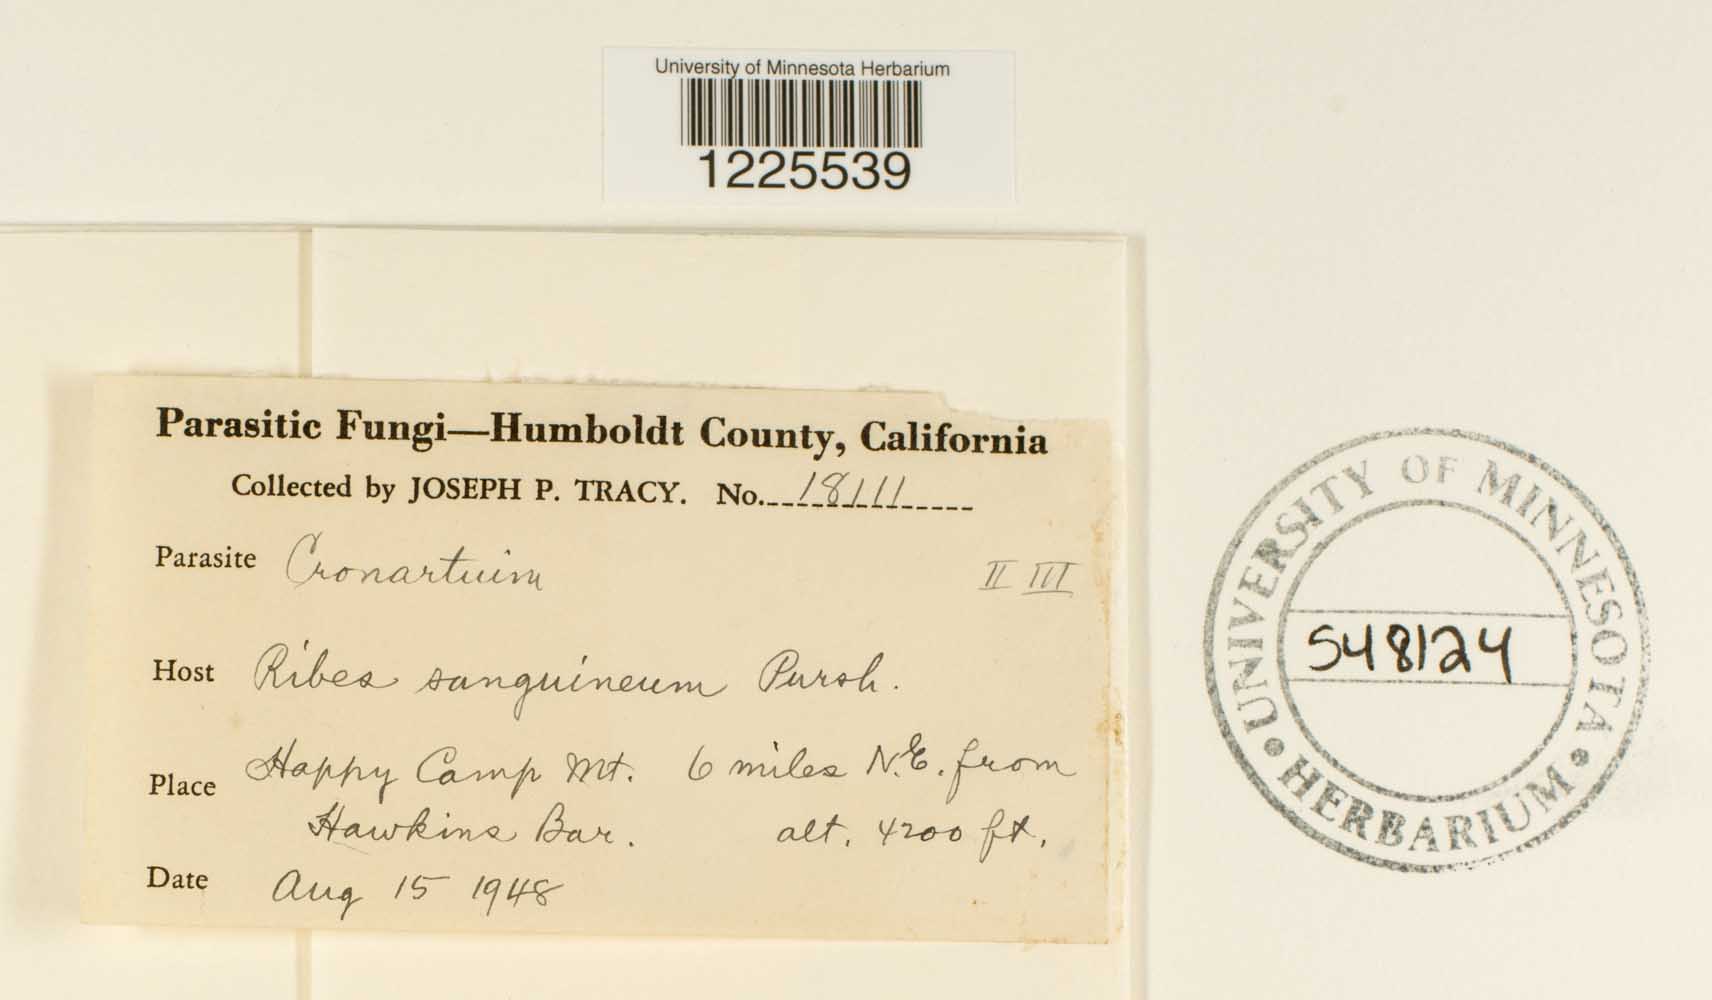 University of Minnesota Herbarium
1225539
Parasitic Fungi—Humboldt County, California
Collected by JOSEPH P. TRACY. No. 18111
Parasite Cronartium II III
Host Ribes sanguineum Pursh.
Place Happy Camp Mt. 6 miles N.E. from
Hawkins Bar. alt. 4200 ft.
Date Aug 15 1948
UNIVERSITY OF MINNESOTA
548124
HERBARIUM